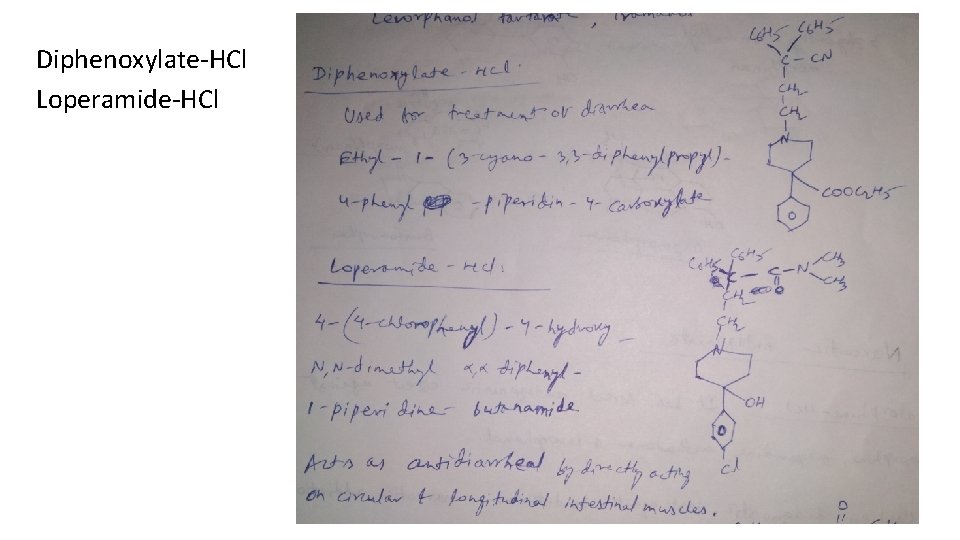 Diphenoxylate-HCl
Loperamide-HCl
Levorphanol tartarate, Tramadol
Diphenoxylate-HCl.
Used for treatment of diarrhea
Ethyl-1-(3-cyano-3,3-diphenylpropyl)-
4-phenyl -piperidin-4-carboxylate
C6H5 C6H5
C-CN
CH2
CH2
N
COOC2H5
Loperamide-HCl.
4-(4-chlorophenyl)-4-hydroxy-
N,N-dimethyl α,α diphenyl-
1-piperidine- butanamide
C6H5 C6H5
C-C-N CH3
CH3
O
CH2
CH2
N
OH
Cl
Acts as antidiarrheal by directly acting
on circular & longitudinal intestinal muscles.
O